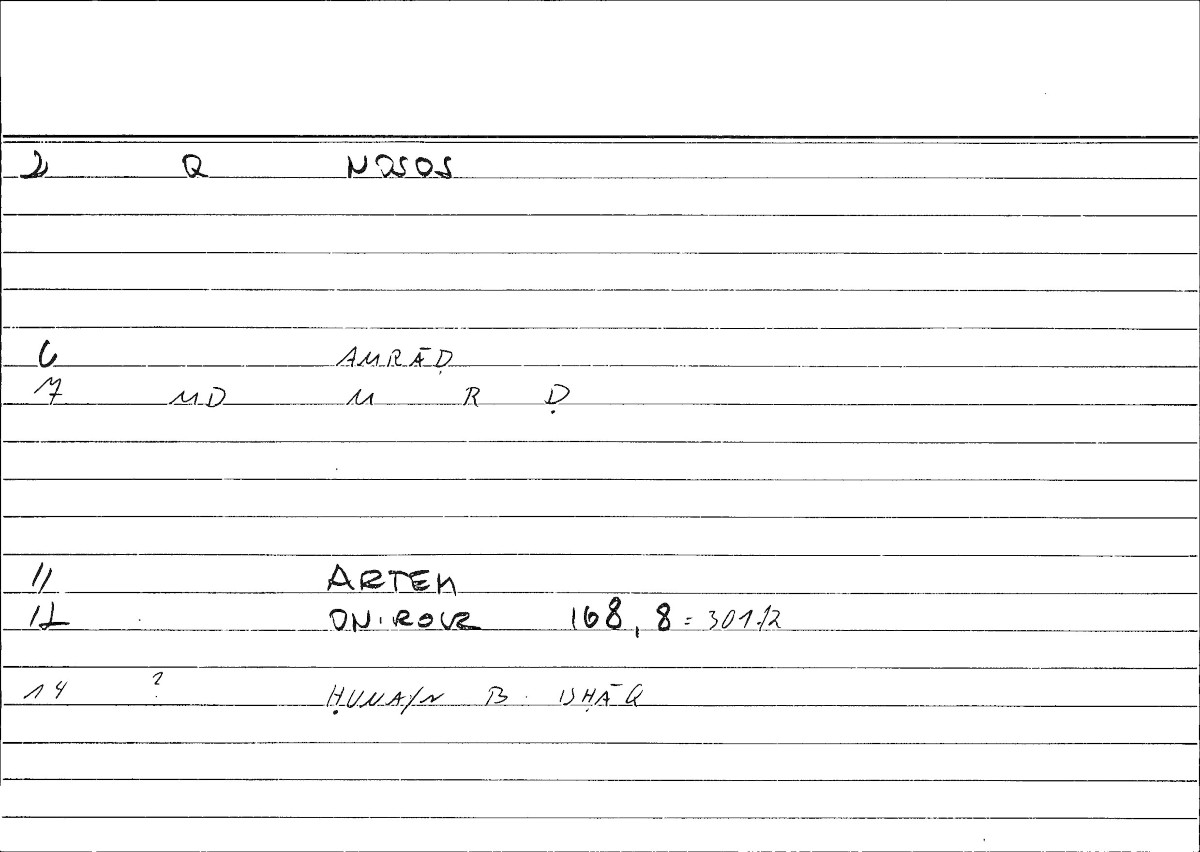 2 Q NOSOS
6 AMRĀḌ
7 MD M R Ḍ
11 ARTEM
12 ONIROCR 168,8 = 301,12
14 ? ḤUNAIN B. ISḤĀQ